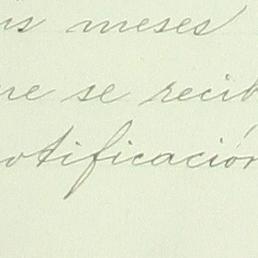 us meses
ue se recib
otificación